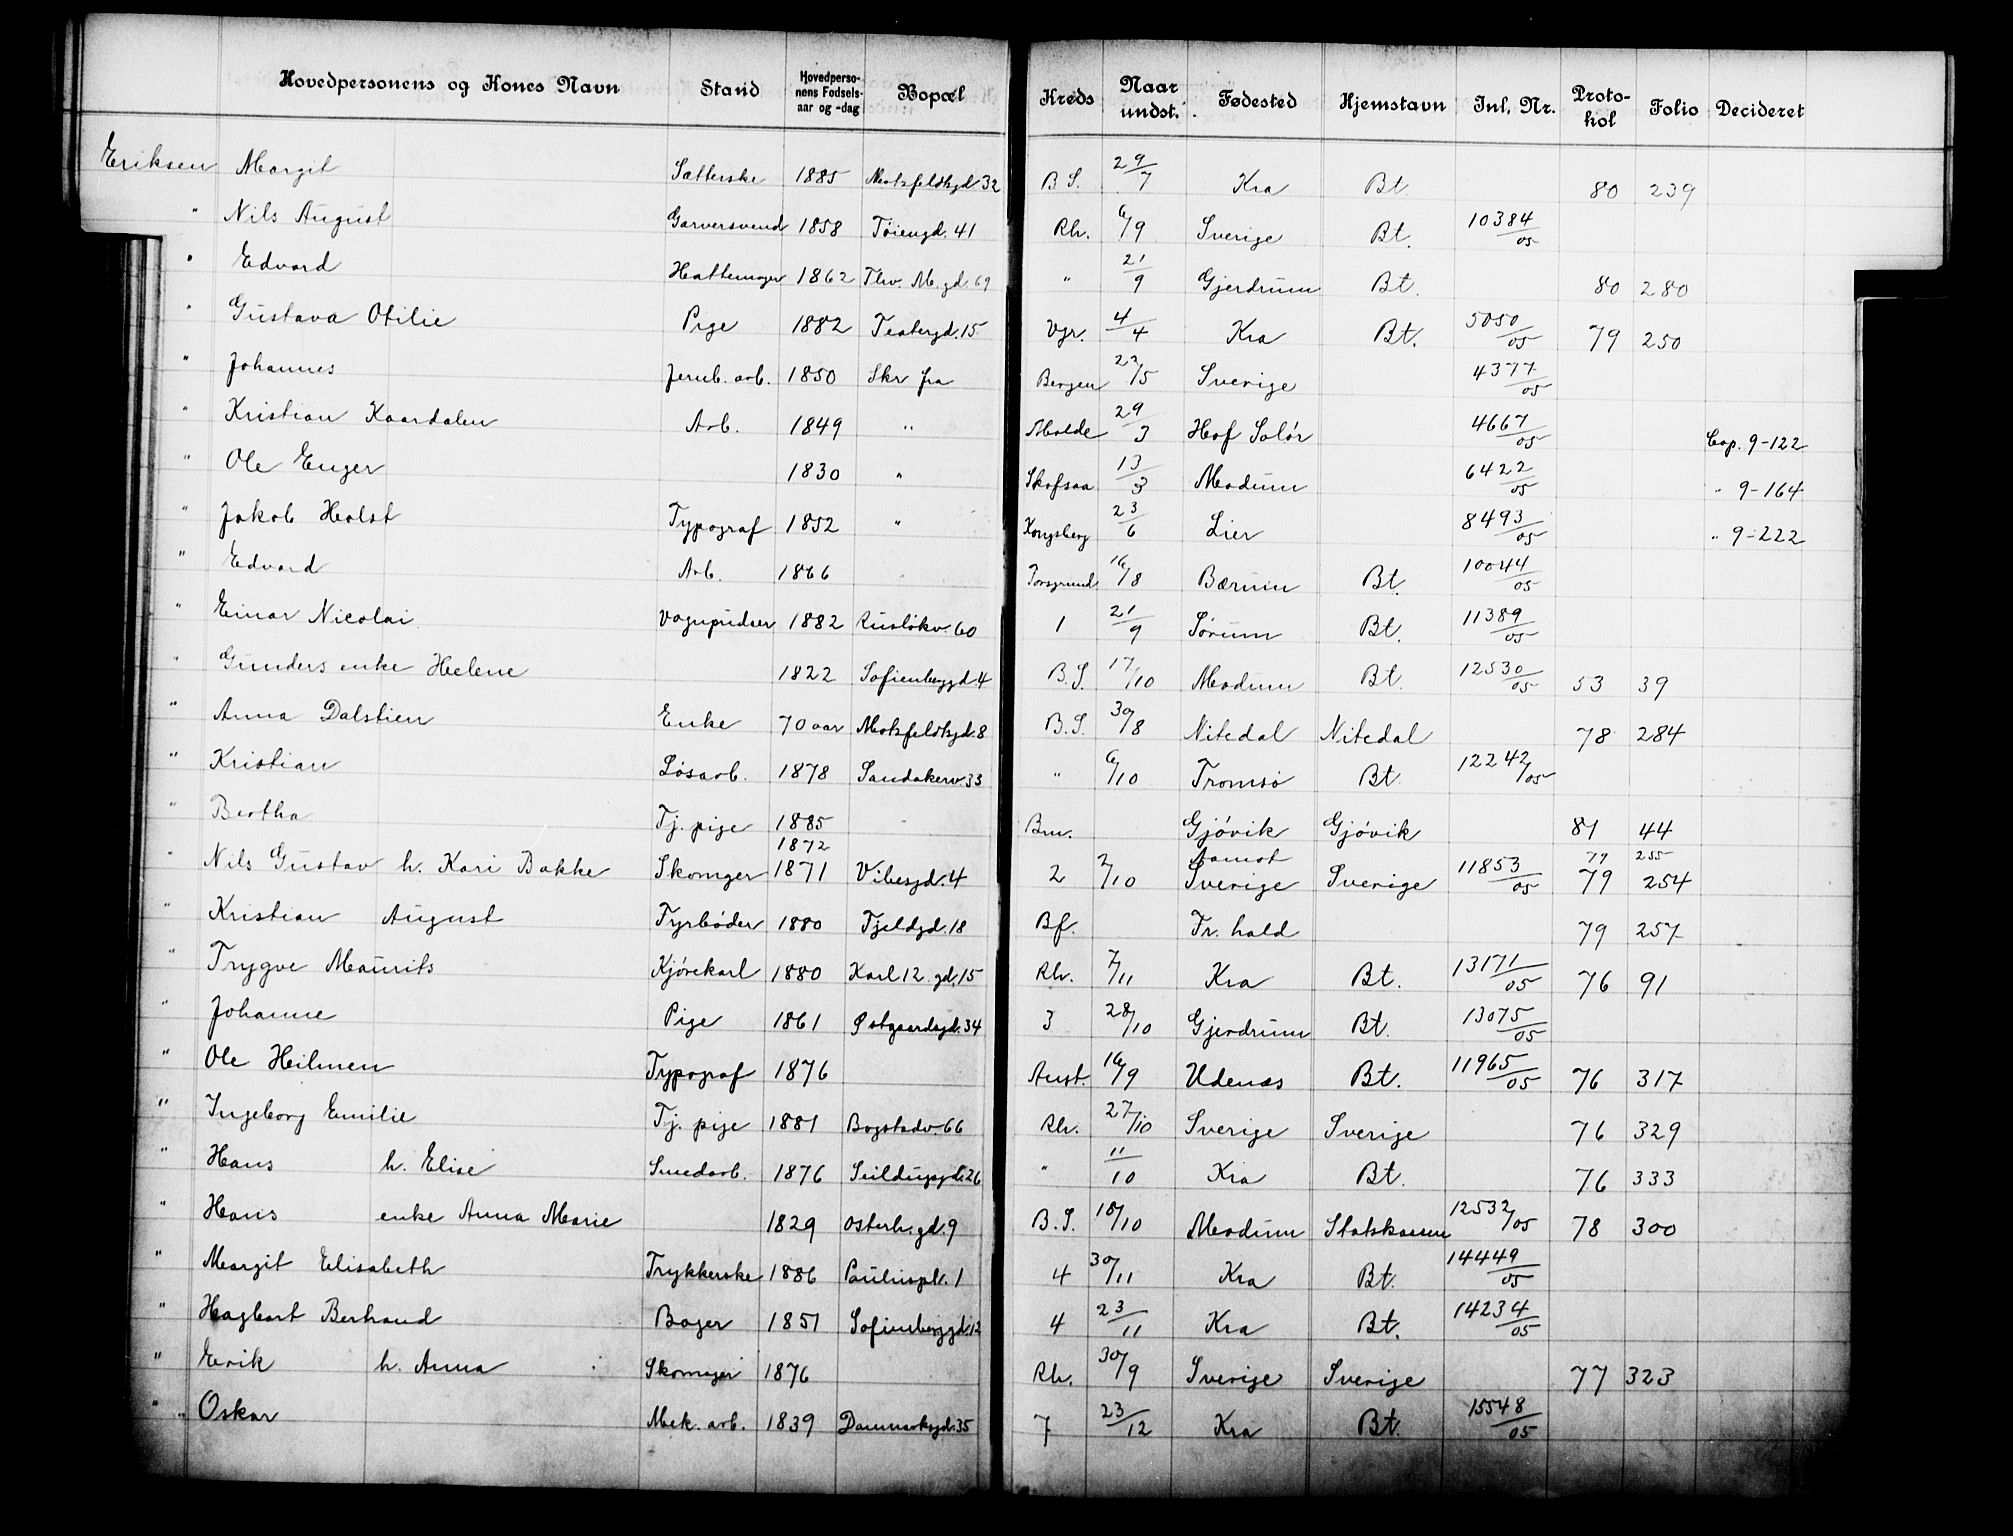 Hovedpersonens og Kones Navn Stand Hovedperso-nens Fødsels-aar og -dag Bopæl Kreds Naar undst. Fødested Hjemstavn Inl. Nr. Proto-kol Folio Decideret
Eriksen Margit Sætterske 1885 Motzfeldtsgd 32 B S. 29/7 Kra Bt. 80 239
" Nils August Garversvend 1858 Tøiengd. 41 Rh. 6/9 Sverige Bt. 10384/05
" Edvard Hattemager 1862 Thv. M. gd. 69 " 21/9 Gjerdrum Bt. 80 280
" Gustava Otilie Pige 1882 Teatergd. 15 Vgr. 4/4 Kra Bt. 5050/05 79 250
" Johannes Jernb. arb. 1850 Skr fra Bergen 22/5 Sverige 4377/05
" Kristian Kaardalen Arb. 1849 " Molde 29/3 Hof Solør 4667/05 Cop. 9-122
" Ole Enger 1830 " 13/3 Modum 6422/05 " 9-164
" Jakob Holst Typograf 1852 " Kongsberg 23/6 Lier 8493/05 " 9-222
" Edvard Arb. 1866 Porsgrund 16/8 Bærum Bt. 10044/05
" Einar Nicolai Vognpudser 1882 Rusløkv. 60 1 21/9 Sørum Bt. 11389/05
" Gunders enke Helene 1822 Sofienberggd 4 B. S. 17/10 Modum Bt. 12530/05 53 39
" Anna Dalstien Enke 70 aar Motzfeldtsgd. 8 B. S. 30/8 Nitedal Nitedal 78 284
" Kristian Løsarb. 1878 Sandakerv. 33 " 6/10 Tromsø Bt. 12242/05
" Bertha Tj. pige 1885 Bm. Gjøvik Gjøvik 81 44
1872 Aamot 79 255
" Nils Gustav h. Kari Bakke Skomger 1871 Vibesgd. 4 2 2/10 Sverige Sverige 11853/05 79 254
" Kristian August Fyrbøder 1880 Fjeldgd. 18 Bf. Fr. hald 79 257
" Trygve Maurits Kjørekarl 1880 Karl 12. gd. 15 Rh. 7/11 Kra Bt. 13171/05 76 91
" Johanne Pige 1861 Østgaardsgd. 34 3 28/10 Gjerdrum Bt. 13075/05
" Ole Heilmen Typograf 1876 Aust. 16/9 Udenæs Bt. 11965/05 76 317
" Ingeborg Emilie Tj. pige 1881 Bogstadv. 66 Rh. 27/10 Sverige Sverige 76 329
" Hans h. Elise Smedarb. 1876 Seildugsgd. 26 " 11/10 Kra Bt. 76 333
" Hans enke Anna Marie 1829 Osterh. gd. 9 B. S. 18/10 Modum Statskassen 12532/05 78 300
" Margit Elisabeth Trykkerske 1886 Pauluspl. 1 4 30/11 Kra Bt. 14449/05
" Hagbart Bertrand Bager 1851 Sofienberggd. 12 4 23/11 Kra Bt. 14234/05
" Erik h. Anna Skomager 1876 Rh. 30/9 Sverige Sverige 77 323
" Oskar Mek. arb. 1839 Danmarksgd. 35 7 23/12 Kra Bt. 15548/05